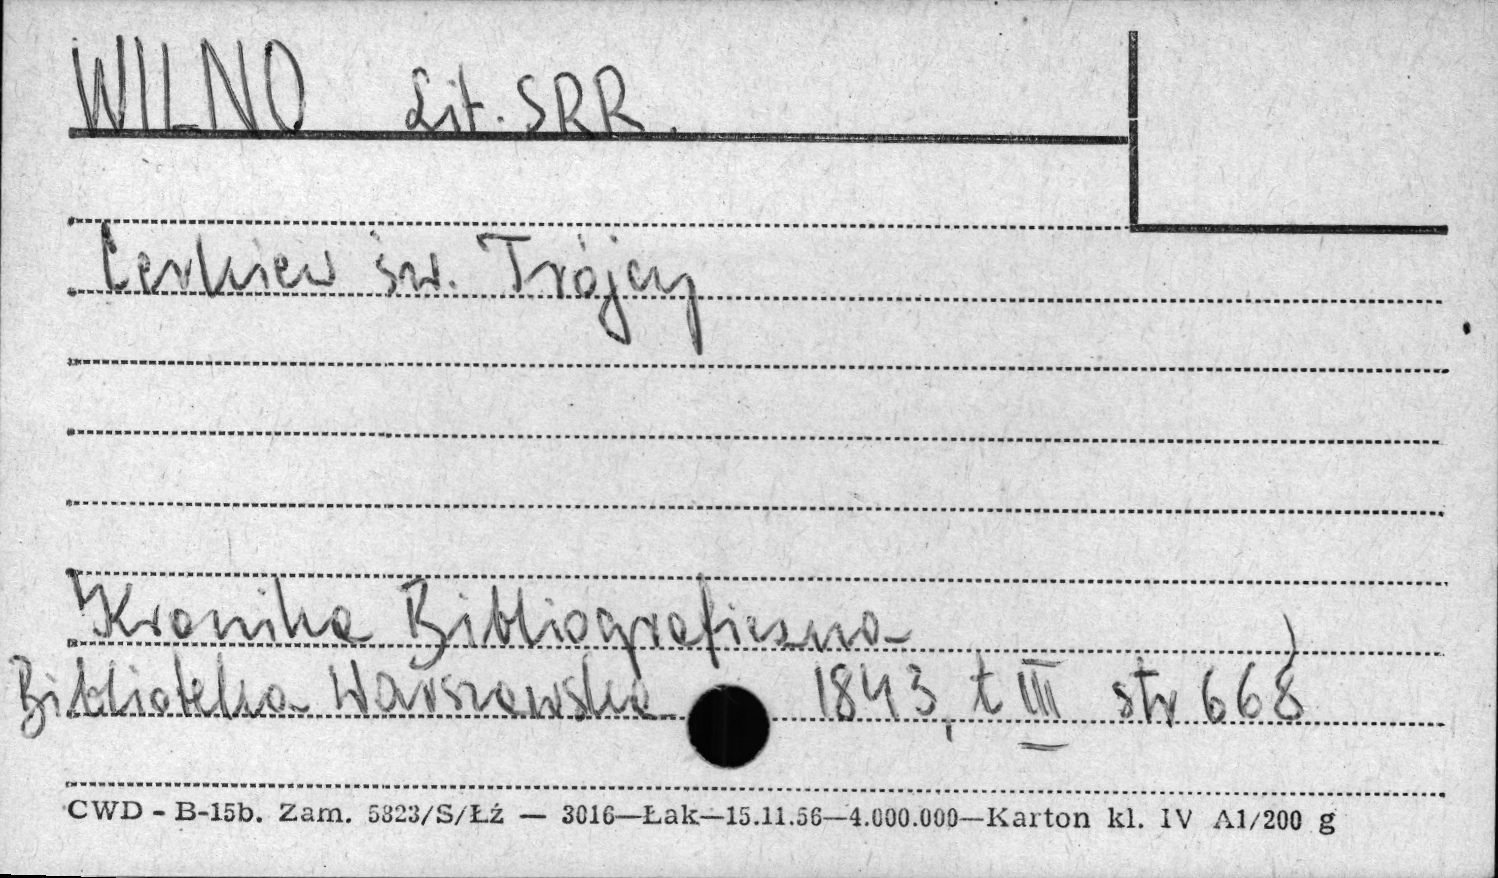 WILNO Lit. SRR.
Cerkiew św. Trójcy
Kronika Bibliograficzna
Biblioteka Warszawska 1843, t III str 668
CWD - B-15b. Zam. 5823/S/Łź — 3016—Łak—15.11.56—4.000.000—Karton kl. IV A1/200 g